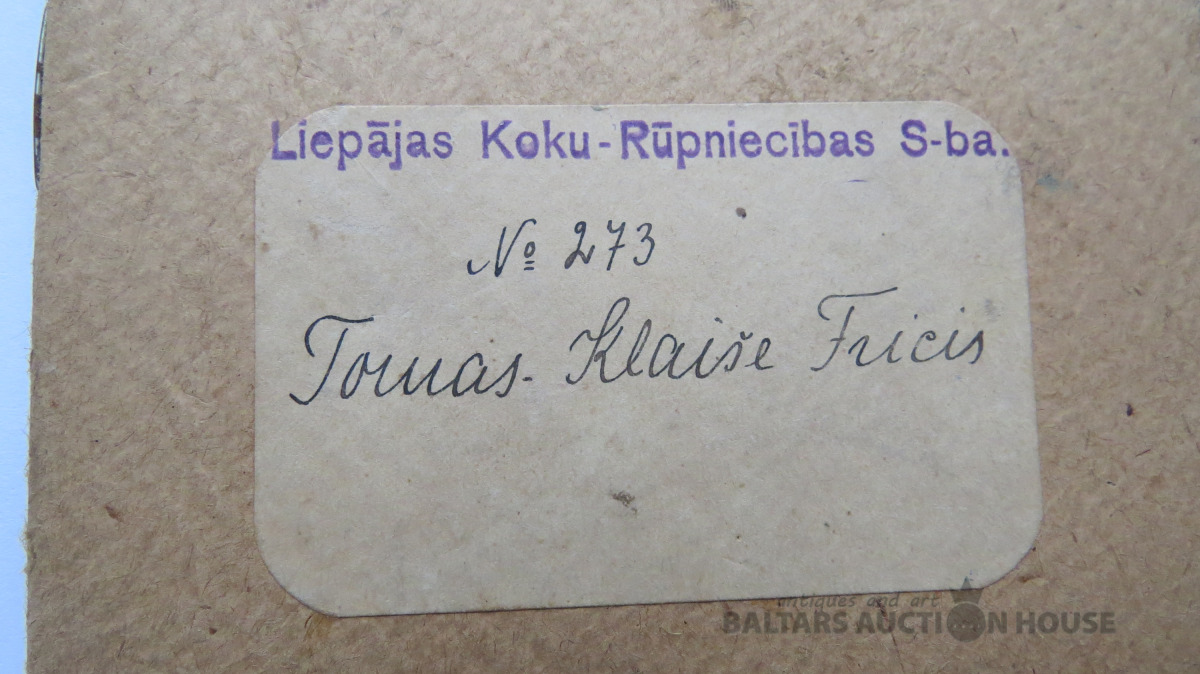 Liepājas Koku-Rūpniecības S-ba.
№ 273
Tomas- Klaiše Fricis
antiques and art
BALTARS AUCTION HOUSE